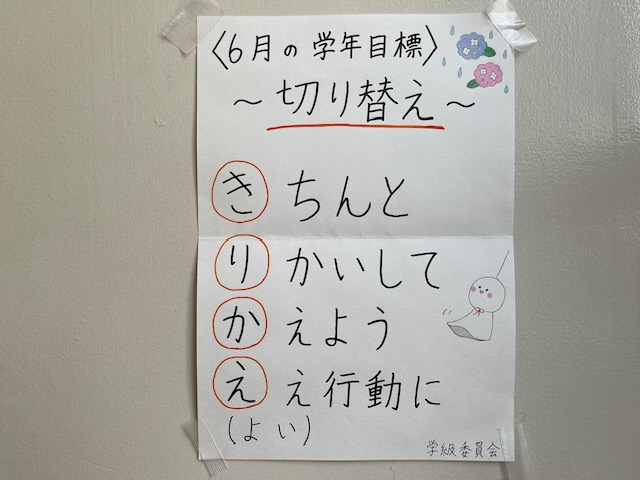 〈6月の学年目標〉
～切り替え～
きちんと
りかいして
かえよう
ええ行動に
(よい)
学級委員会